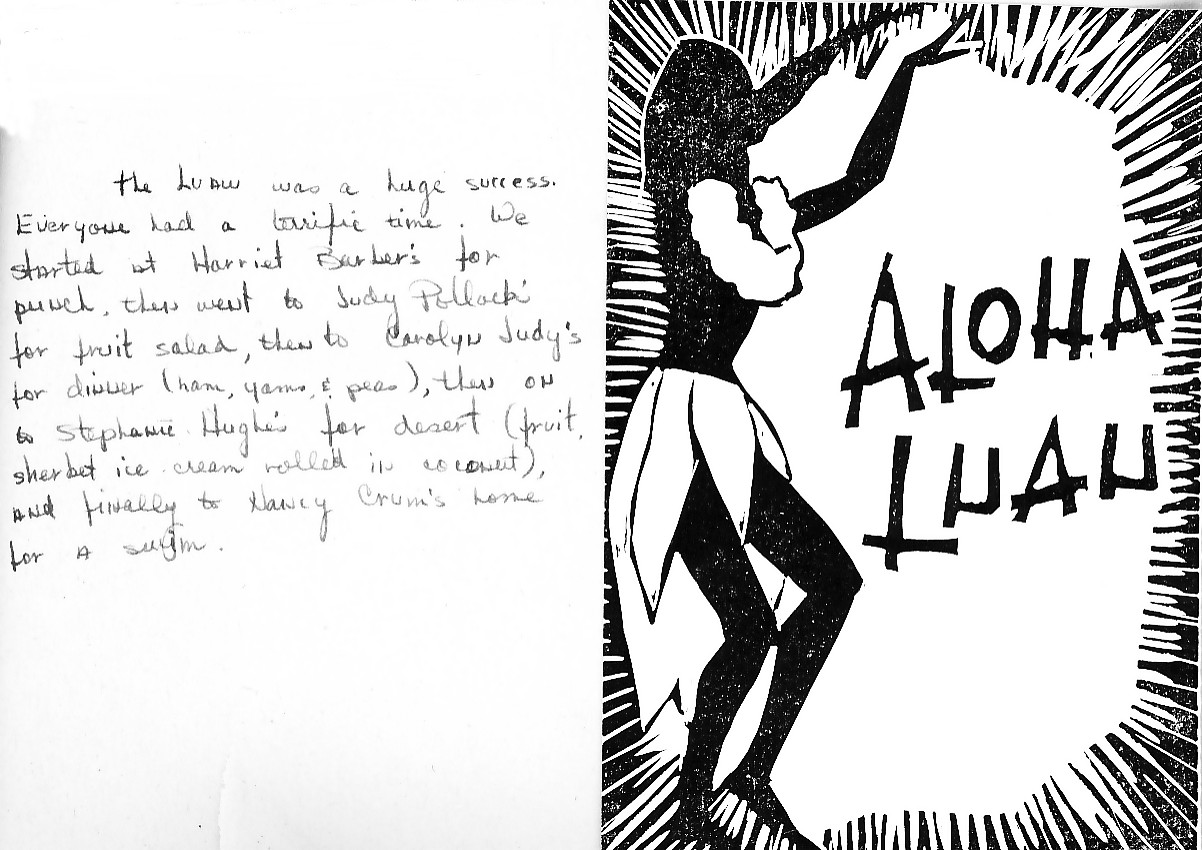 The Luau was a huge success.
Everyone had a terrific time. We
started at Harriet Barber's for
punch, then went to Judy Pollack's
for fruit salad, then to Carolyn Judy's
for dinner (ham, yams, & peas), then on
to Stephanie Hughe's for desert (fruit,
sherbet ice cream rolled in coconut),
and finally to Nancy Crum's home
for a swim.
ALOHA
LUAU